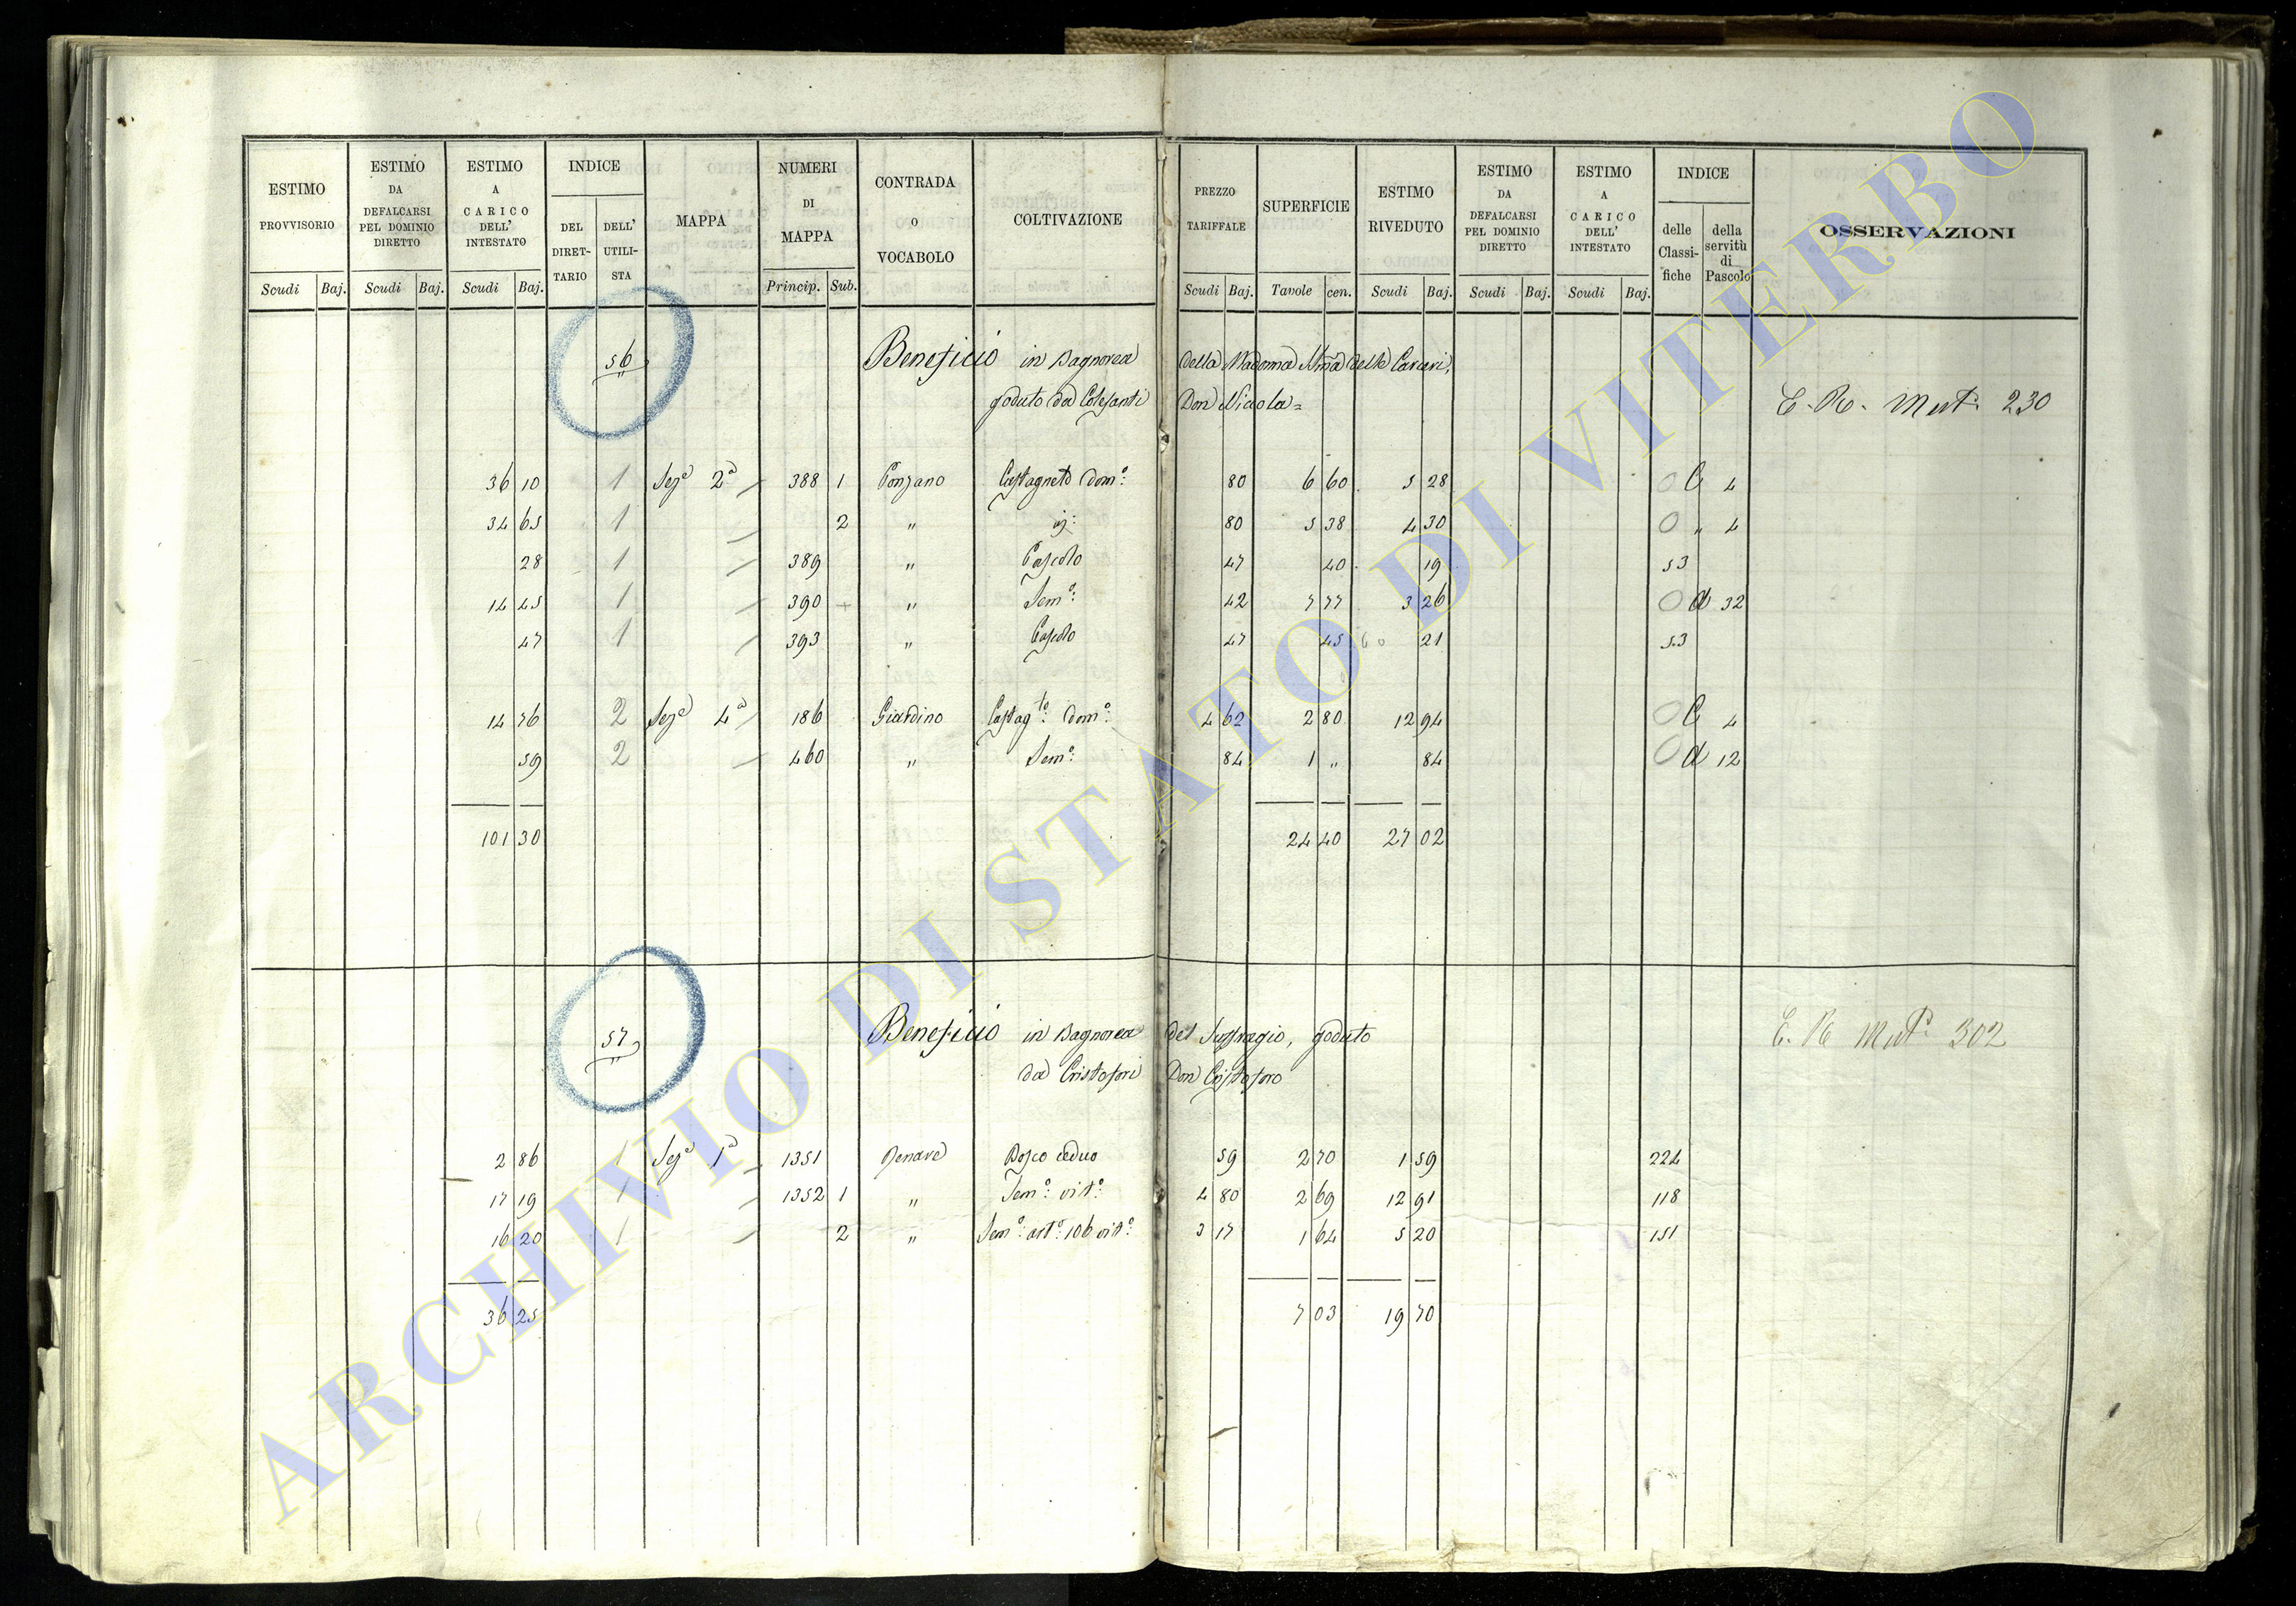 ESTIMO PROVVISORIO | ESTIMO DA DEFALCARSI PEL DOMINIO DIRETTO | ESTIMO A CARICO DELL' INTESTATO | INDICE DEL DIRET-TARIO | DELL' UTILI-STA | MAPPA | NUMERI DI MAPPA | CONTRADA O VOCABOLO | COLTIVAZIONE | PREZZO TARIFFALE | SUPERFICIE | ESTIMO RIVEDUTO | ESTIMO DA DEFALCARSI PEL DOMINIO DIRETTO | ESTIMO A CARICO DELL' INTESTATO | INDICE delle Classi-fiche | della servitù di Pascolo | OSSERVAZIONI
Scudi Baj. Scudi Baj. Scudi Baj. Princip. Sub. Scudi Baj. Tavole cen. Scudi Baj. Scudi Baj. Scudi Baj.
56 Beneficio in Bagnorea della Madonna SSma delle Carceri,
goduto da Colesanti Don Nicola = E. R. Mut: 230
36 10 1 Seza 2a 388 1 Ponzano Castagneto dom°: 80 6 60 5 28 C 4
34 65 1 2 " id: 80 5 38 4 30 " 4
28 1 389 " Pascolo 47 40 19 53
14 45 1 390 " Sem°: 42 7 77 3 26 a 32
47 1 393 " Pascolo 47 45 21 53
14 76 2 Seza 4a 186 Giardino Castagto: dom°: 4 62 2 80 12 94 C 4
59 2 460 " Sem°: 84 1 " 84 a 12
101 30 24 40 27 02
57 Beneficio in Bagnorea del Suffragio, goduto E. R. Mut: 302
da Cristofori Don Cristoforo
2 86 1 Seza 1a 1351 Bosco ceduo 59 2 70 1 59 224
17 19 1 1352 1 " Sem°: vit°: 4 80 2 69 12 91 118
16 20 1 2 " Sem°: art°: 106 vit°: 3 17 1 64 5 20 151
36 25 7 03 19 70
ARCHIVIO DI STATO DI VITERBO